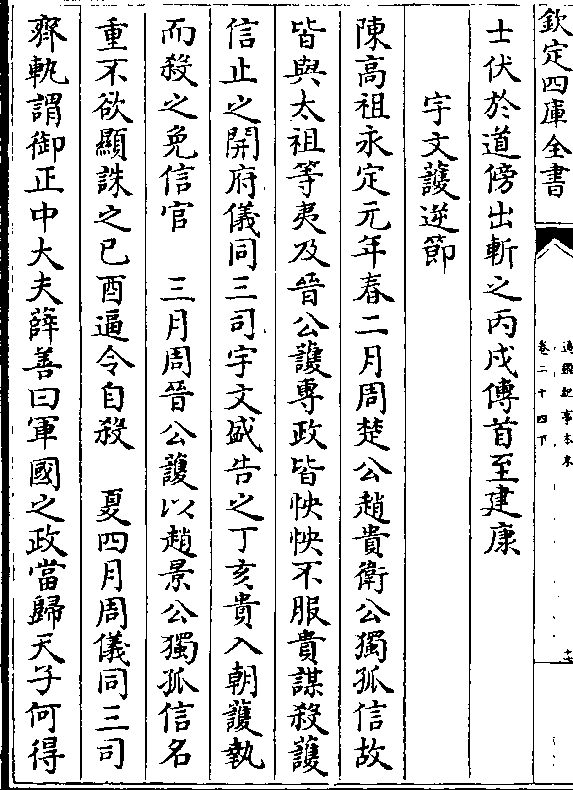 欽定四庫全書
通鑑紀事本末
卷二十四下
士伏於道傍出斬之丙戌傳首至建康
宇文護逆節
陳高祖永定元年春二月周楚公趙貴衛公獨孤信故
皆與太祖等夷及晉公護專政皆怏怏不服貴謀殺護
信止之開府儀同三司宇文盛告之丁亥貴入朝護執
而殺之免信官 三月周晉公護以趙景公獨孤信名
重不欲顯誅之已酉逼令自殺 夏四月周儀同三司
齊軌謂御正中大夫薛善曰軍國之政當歸天子何得